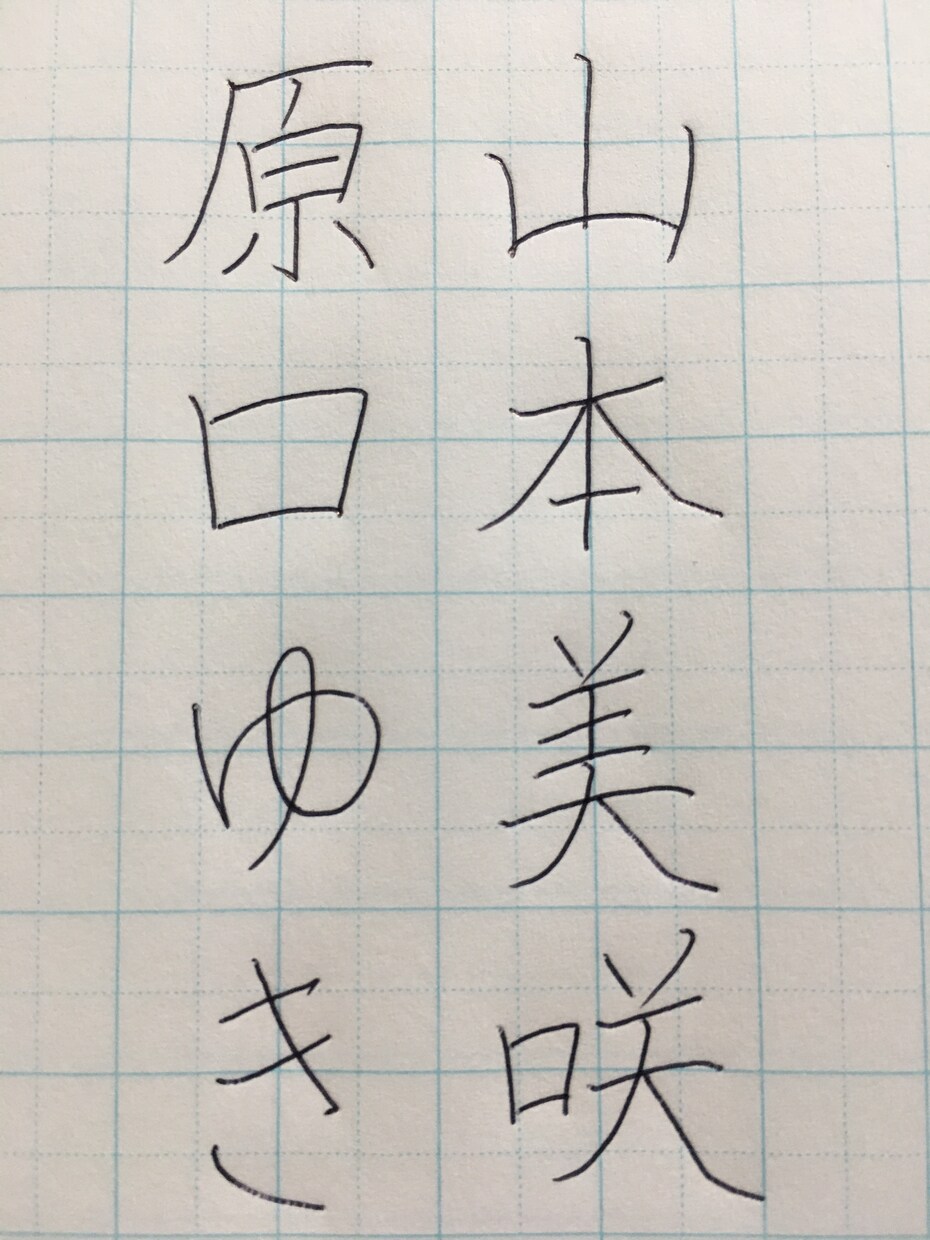 山本美咲
原口ゆき